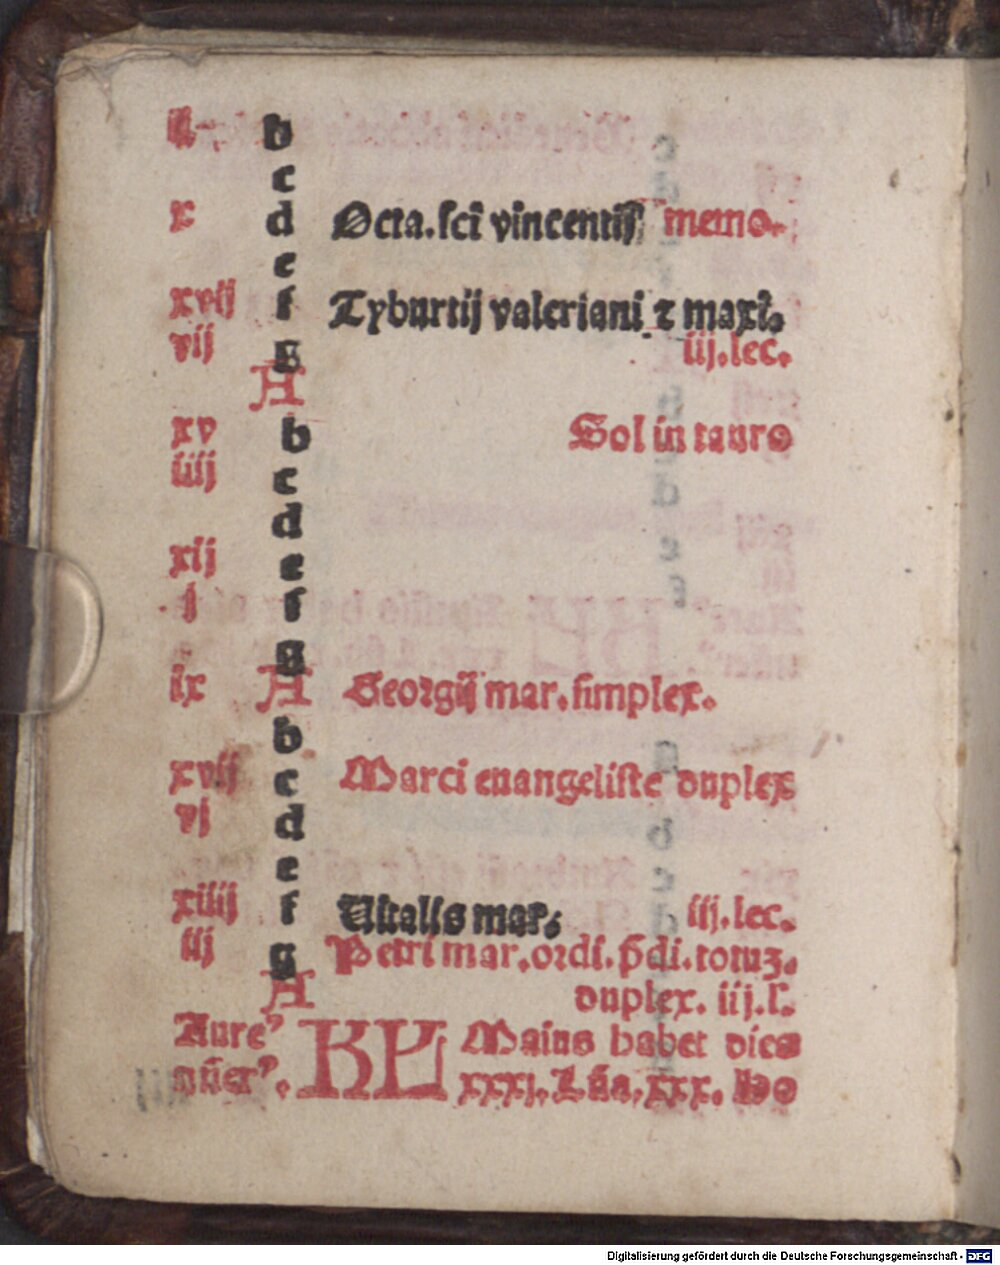 ii. b
c
x d Octa.sci vincentij memo.
e
xvij f Tyburtij valeriani ⁊ maxi.
vij g iij.lec.
A
xv b Sol in tauro
iiij c
d
xij e
.i f
g
ix A Georgij mar.simplex.
b
xvij c Marci euangeliste duplex
vj d
e
xiiij f Uitalis mar. iij.lec.
iij g Petri mar.ordi.p̄di.totuꝫ.
A duplex. iij.l.
Aure⁹ KL Maius habet dies
nūer⁹. xxxj.Lūa.xxx. Ho
Digitalisierung gefördert durch die Deutsche Forschungsgemeinschaft - DFG